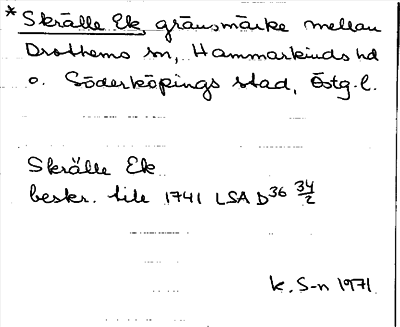 * Skrälle Ek, gränsmärke mellan
Drothems sn, Hammarkinds hd
o. Söderköpings stad, Östg.l.
Skrälle Ek
beskr. till 1741 LSA D36 34/2
K. S-n 1971.